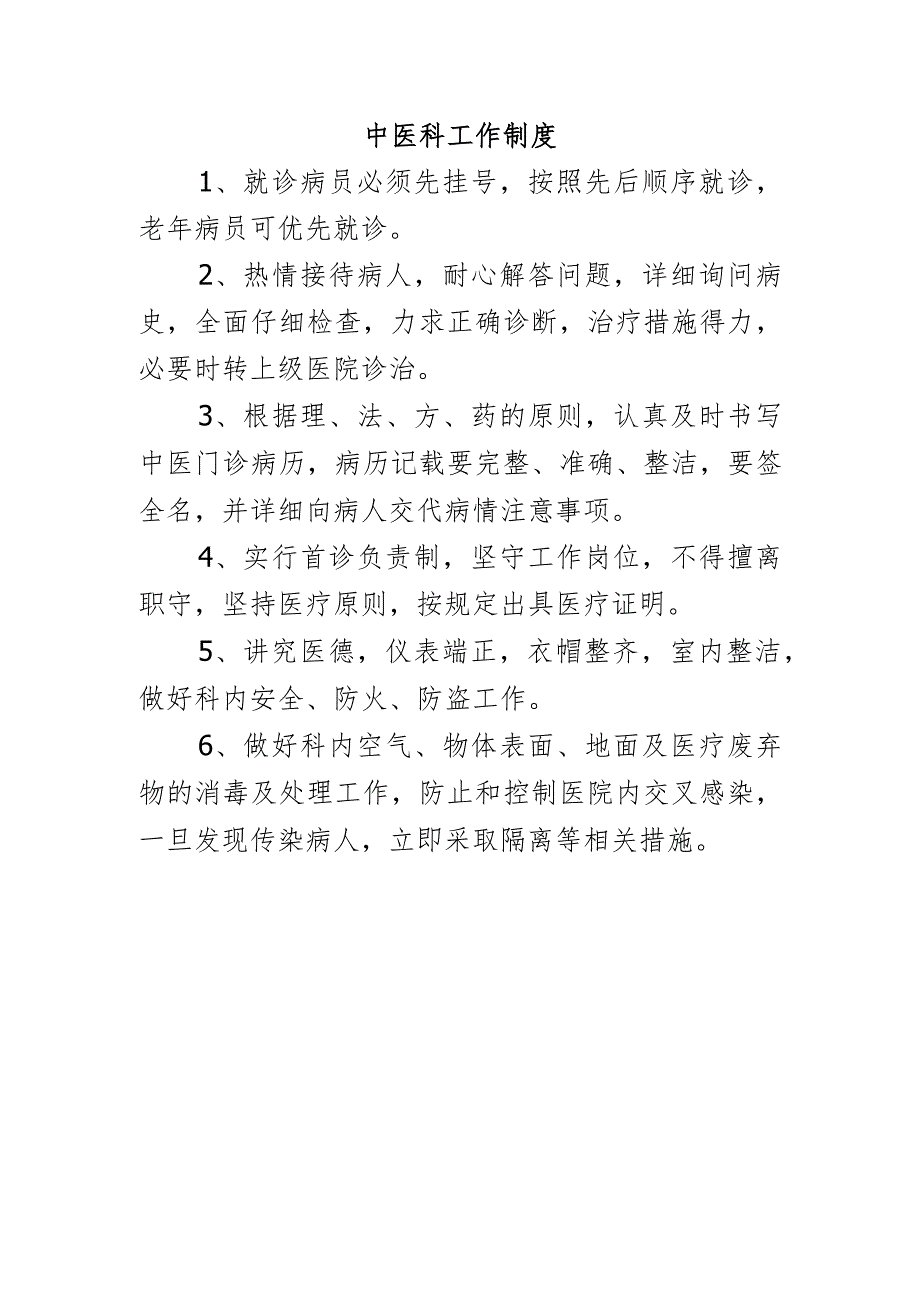 中医科工作制度
1、就诊病员必须先挂号，按照先后顺序就诊，
老年病员可优先就诊。
2、热情接待病人，耐心解答问题，详细询问病
史，全面仔细检查，力求正确诊断，治疗措施得力，
必要时转上级医院诊治。
3、根据理、法、方、药的原则，认真及时书写
中医门诊病历，病历记载要完整、准确、整洁，要签
全名，并详细向病人交代病情注意事项。
4、实行首诊负责制，坚守工作岗位，不得擅离
职守，坚持医疗原则，按规定出具医疗证明。
5、讲究医德，仪表端正，衣帽整齐，室内整洁，
做好科内安全、防火、防盗工作。
6、做好科内空气、物体表面、地面及医疗废弃
物的消毒及处理工作，防止和控制医院内交叉感染，
一旦发现传染病人，立即采取隔离等相关措施。